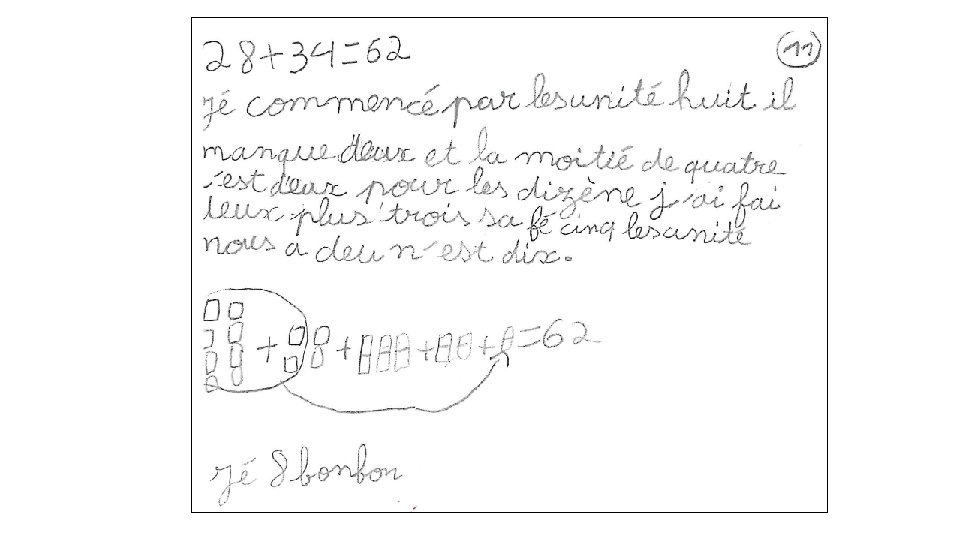 28+34=62
11
jé commencé par lesunité huit il
manque deux et la moitié de quatre
c'est deux pour les dizène j'ai fai
deux plus trois sa fé cinq lesunité
nous a deu n'est dix.
+ + + + =62
jé 8 bonbon